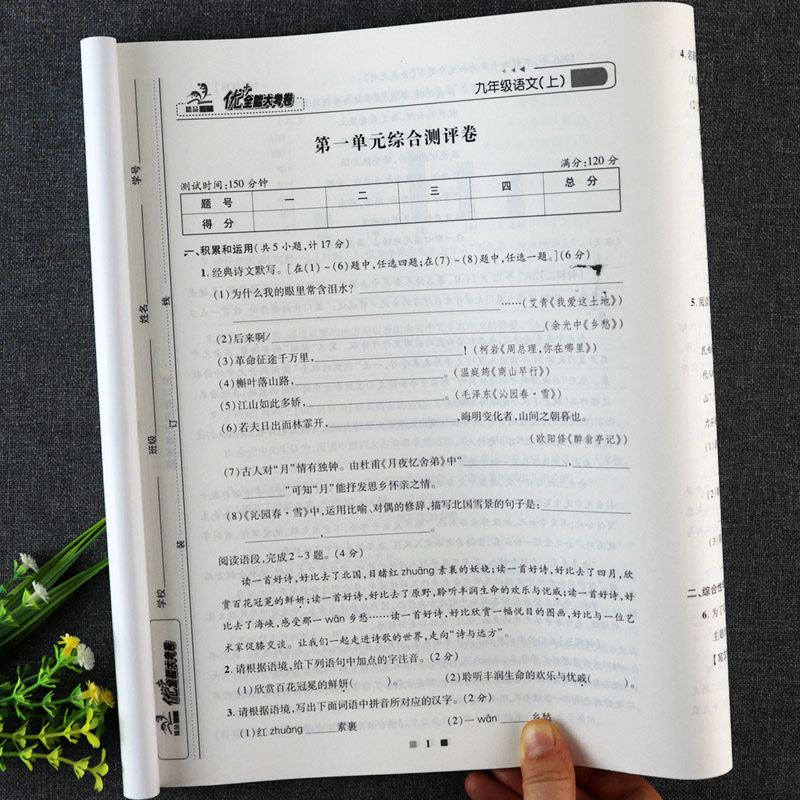 精品
优+全能大考卷
九年级语文(上)
第一单元综合测评卷
测试时间:150分钟
满分:120分
题 号 一 二 三 四 总 分
得 分
一、积累和运用(共5小题,计17分)
1. 经典诗文默写。[在(1)~(6)题中,任选四题;在(7)~(8)题中,任选一题。](6分)
(1)为什么我的眼里常含泪水?
……(艾青《我爱这土地》)
(2)后来啊/ (余光中《乡愁》)
(3)革命征途千万里, !(柯岩《周总理,你在哪里》)
(4)槲叶落山路, 。(温庭筠《商山早行》)
(5)江山如此多娇, 。(毛泽东《沁园春·雪》)
(6)若夫日出而林霏开, ,晦明变化者,山间之朝暮也。
(欧阳修《醉翁亭记》)
(7)古人对“月”情有独钟。由杜甫《月夜忆舍弟》中“ ,
”可知“月”能抒发思乡怀亲之情。
(8)《沁园春·雪》中,运用比喻、对偶的修辞,描写北国雪景的句子是:
, 。
阅读语段,完成2~3题。(4分)
读一首好诗,好比去了北国,目睹红 zhuāng 素裹的妖娆;读一首好诗,好比去了四月,欣
赏百花冠冕的鲜妍;读一首好诗,好比去了原野,聆听丰润生命的欢乐与忧戚;读一首好诗,好
比去了海峡,感受那一 wān 乡愁……读一首好诗,好比欣赏一幅悦目的图画,好比与一位艺
术家促膝交谈。让我们一起走进诗歌的世界,走向“诗与远方”。
2. 请根据语境,给下列语句中加点的字注音。(2分)
(1)欣赏百花冠冕的鲜妍( )。 (2)聆听丰润生命的欢乐与忧戚( )。
3. 请根据语境,写出下面词语中拼音所对应的汉字。(2分)
(1)红 zhuāng 素裹 (2)一 wān 乡愁
1
学号
姓名
班级
学校
线
订
装
精品
优+全能大考卷
4.
(1)
5. 阅
(2)
(3)
二、综合性
6. 为了
主题
【写